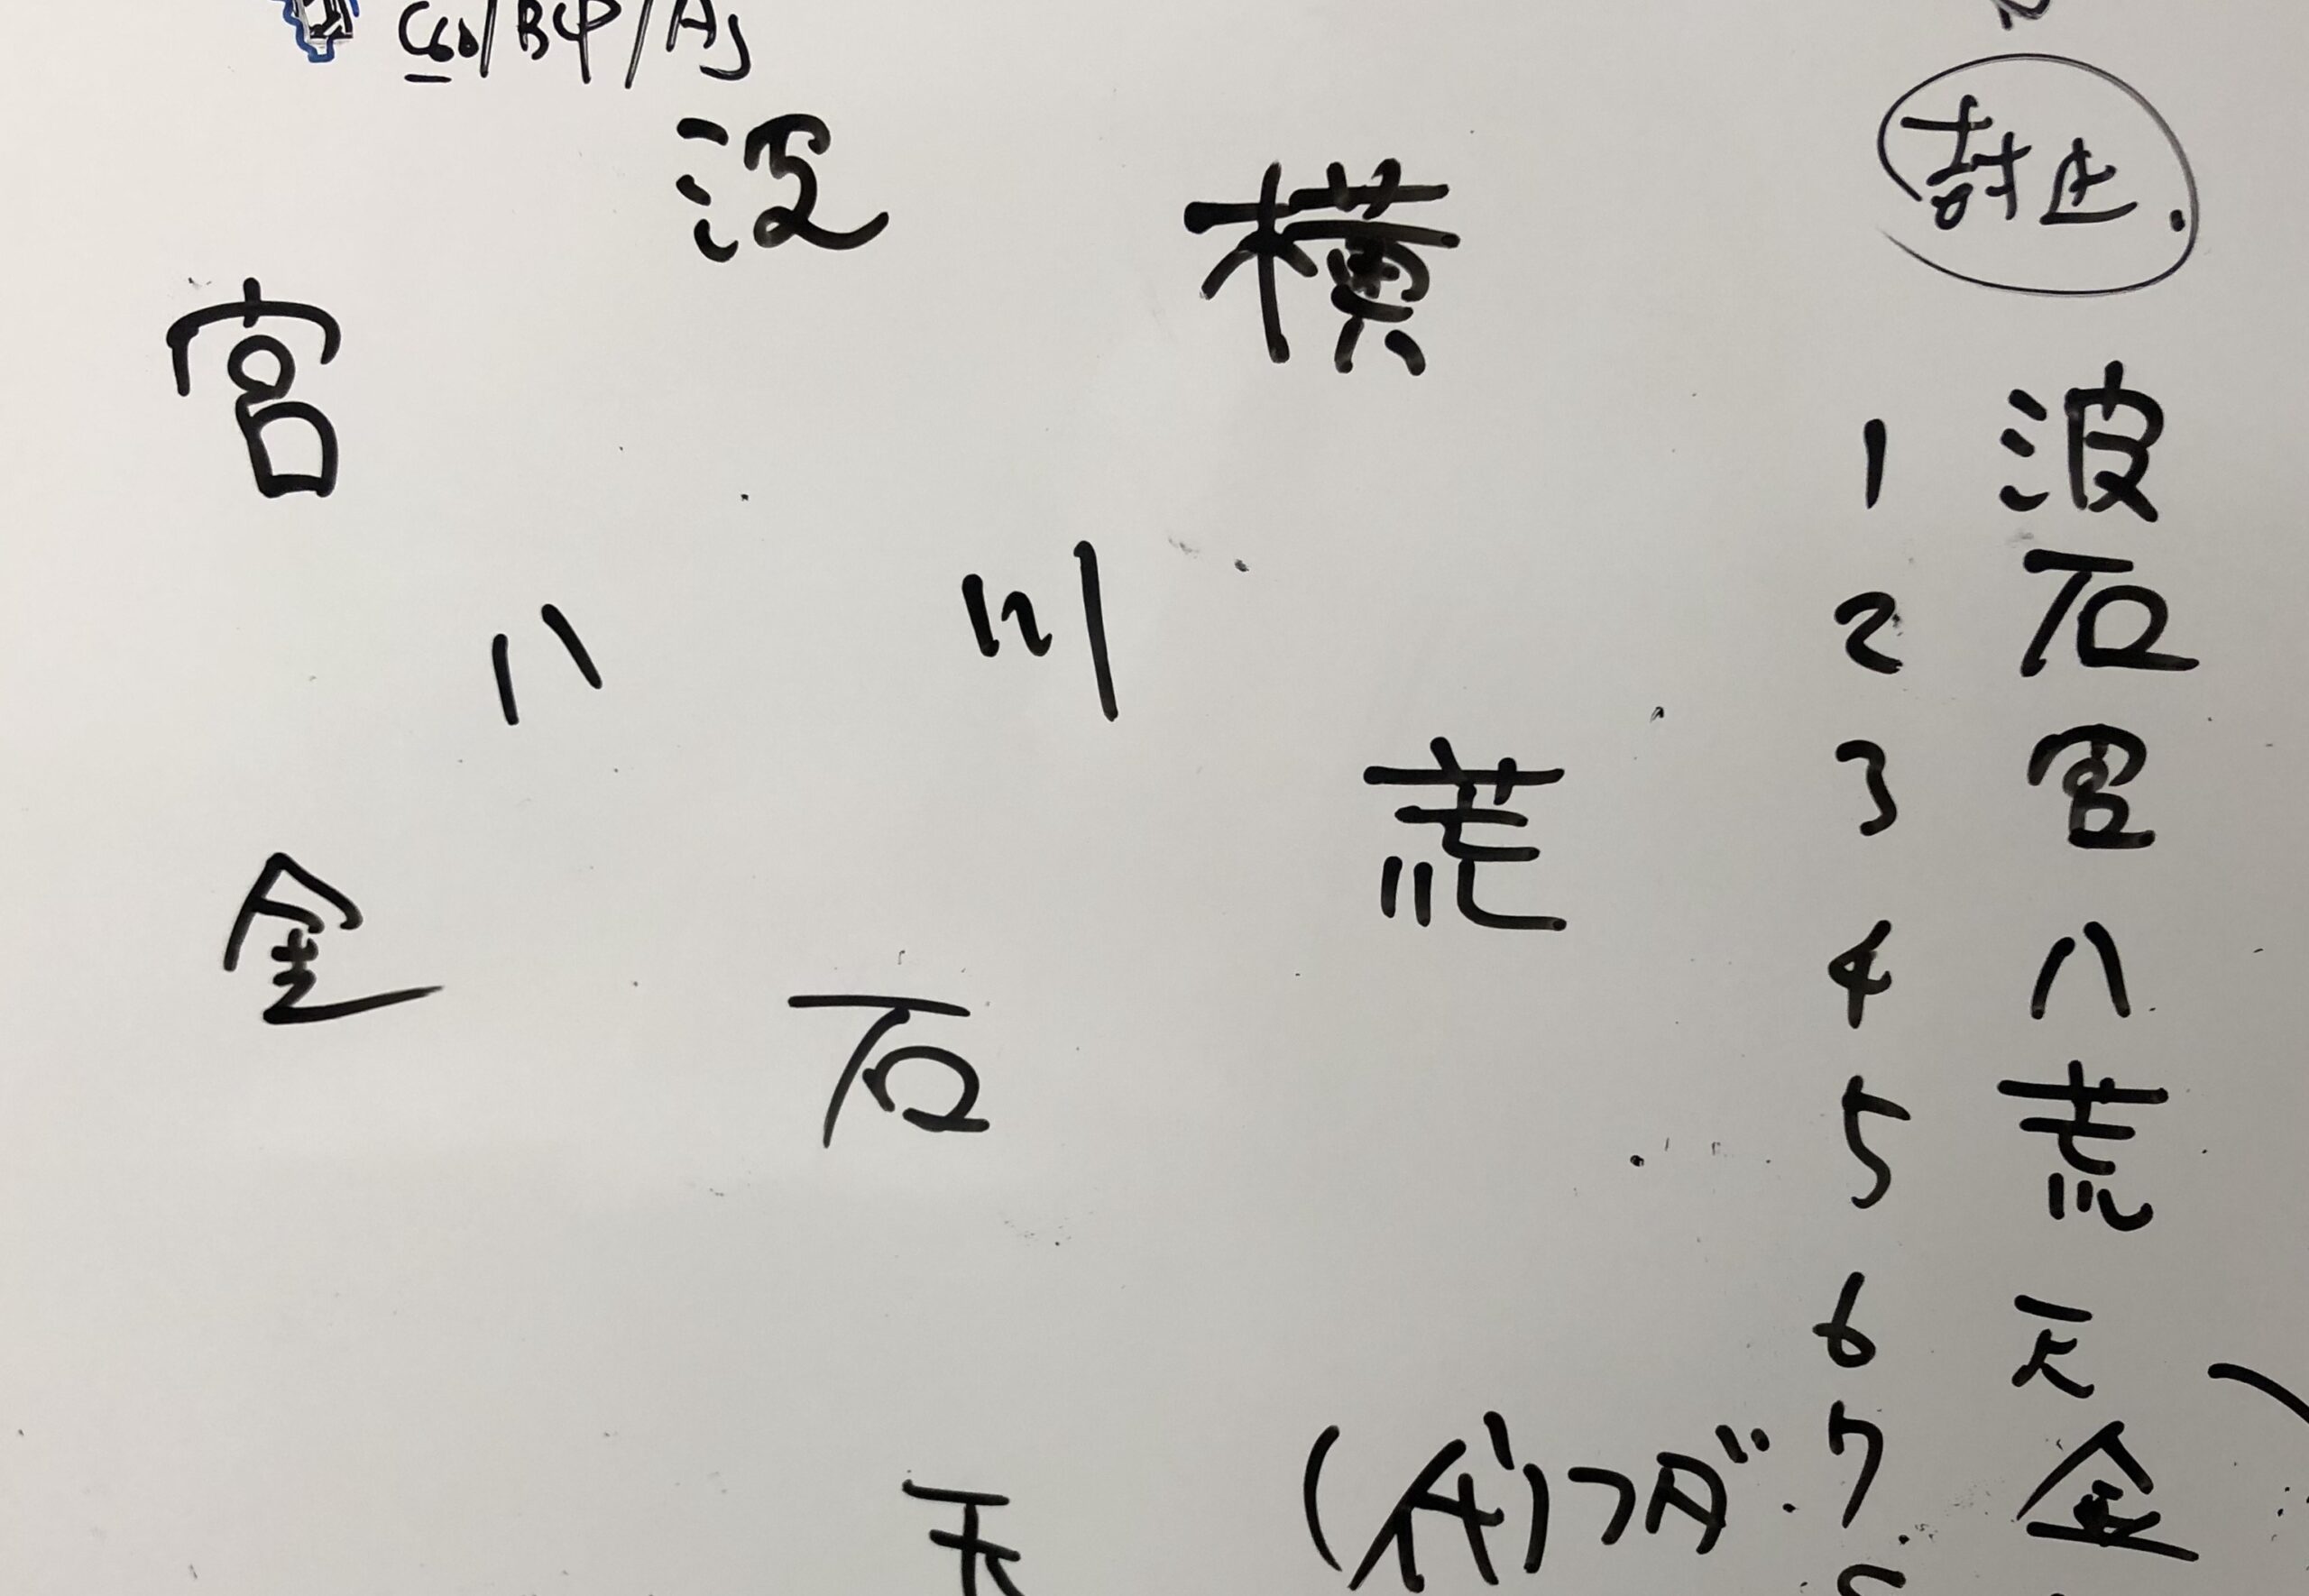 C60/BCP/Ag
没
横
宮
八
川
荒
金
石
天
1 波
2 石
3 宮
4 八
5 荒
6 天
(代)フダ. 7 金